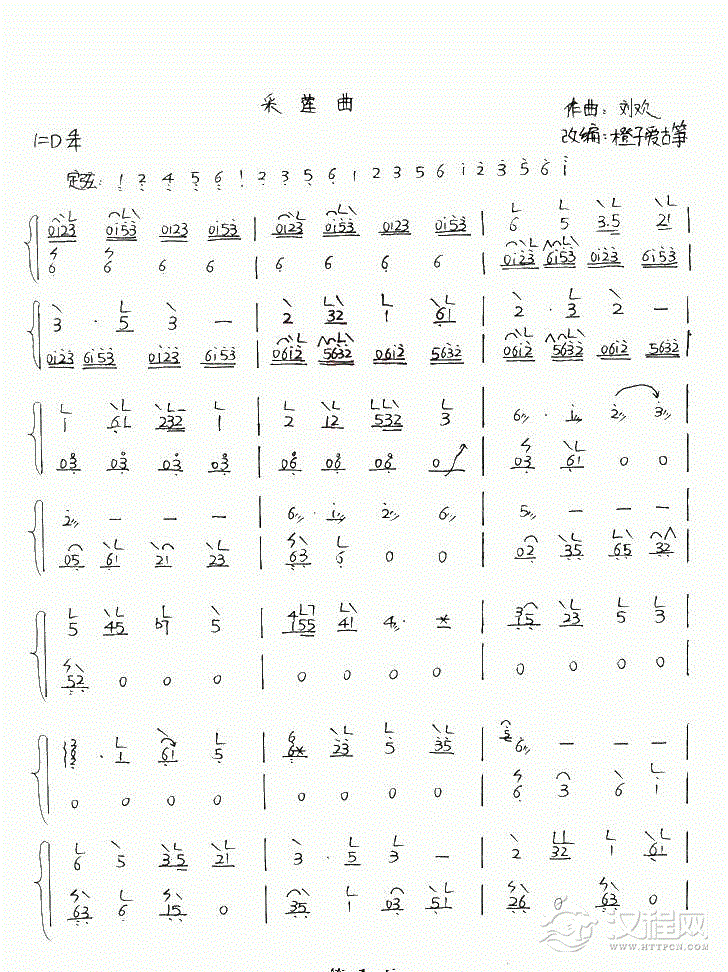 采莲曲
作曲：刘欢
改编：橙子爱古筝
1=D 4/4
定弦：1 2 4 5 6 1 2 3 5 6 1 2 3 5 6 1 2 3 5 6 1
0123 0153 0123 0153 | 0123 0153 0123 0153 | 6 5 3.5 21
6 6 6 6 | 6 6 6 6 | 0123 6153 0123 6153
3 . 5 3 — | 2 32 1 61 | 2 . 3 2 —
0123 6153 0123 6153 | 0612 5632 0612 5632 | 0612 5632 0612 5632
1 61 232 1 | 2 12 532 3 | 6 . 1 2 3
03 03 03 03 | 06 06 06 0 | 03 61 0 0
2 — — — | 6 . 1 2 6 | 5 — — —
05 61 21 23 | 63 6 0 0 | 02 35 65 32
5 45 b7 5 | 4155 41 4 . * | 315 23 5 3
52 0 0 0 | 0 0 0 0 | 0 0 0 0
. 1 61 5 | 6* 23 5 35 | 6 — — —
0 0 0 0 | 0 0 0 0 | 6 3 6 1
6 5 3.5 21 | 3 . 5 3 — | 2 32 1 61
63 6 15 0 | 35 1 03 51 | 26 0 63 0
汉程网
HTTPCN.COM